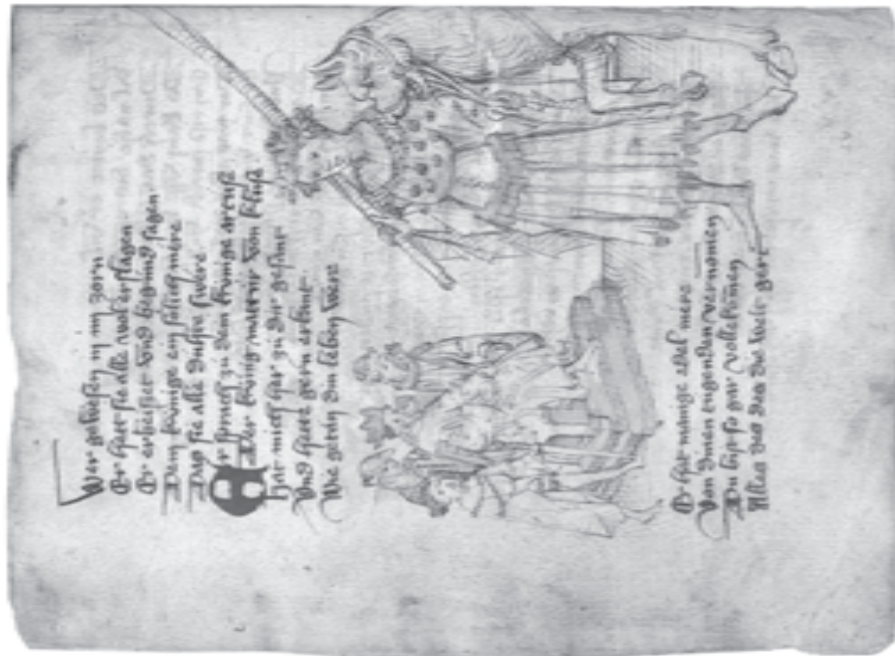 Wer gewesen in im zorn
Er hett sie alle wol erslagen
Er erbeisset vnd begund sagen
Dem künige ein sölich mere
Das sie alle duhte swere
Er sprach zu dem künige
Der künig von
Hat mich har zu dir gesant
Vnd hette gern erkant
Wie getan din leben were
Er hat manige edel mere
Von dinen tugenden vernomen
Du bist so gar vollekomen
Alles des das die welt gert